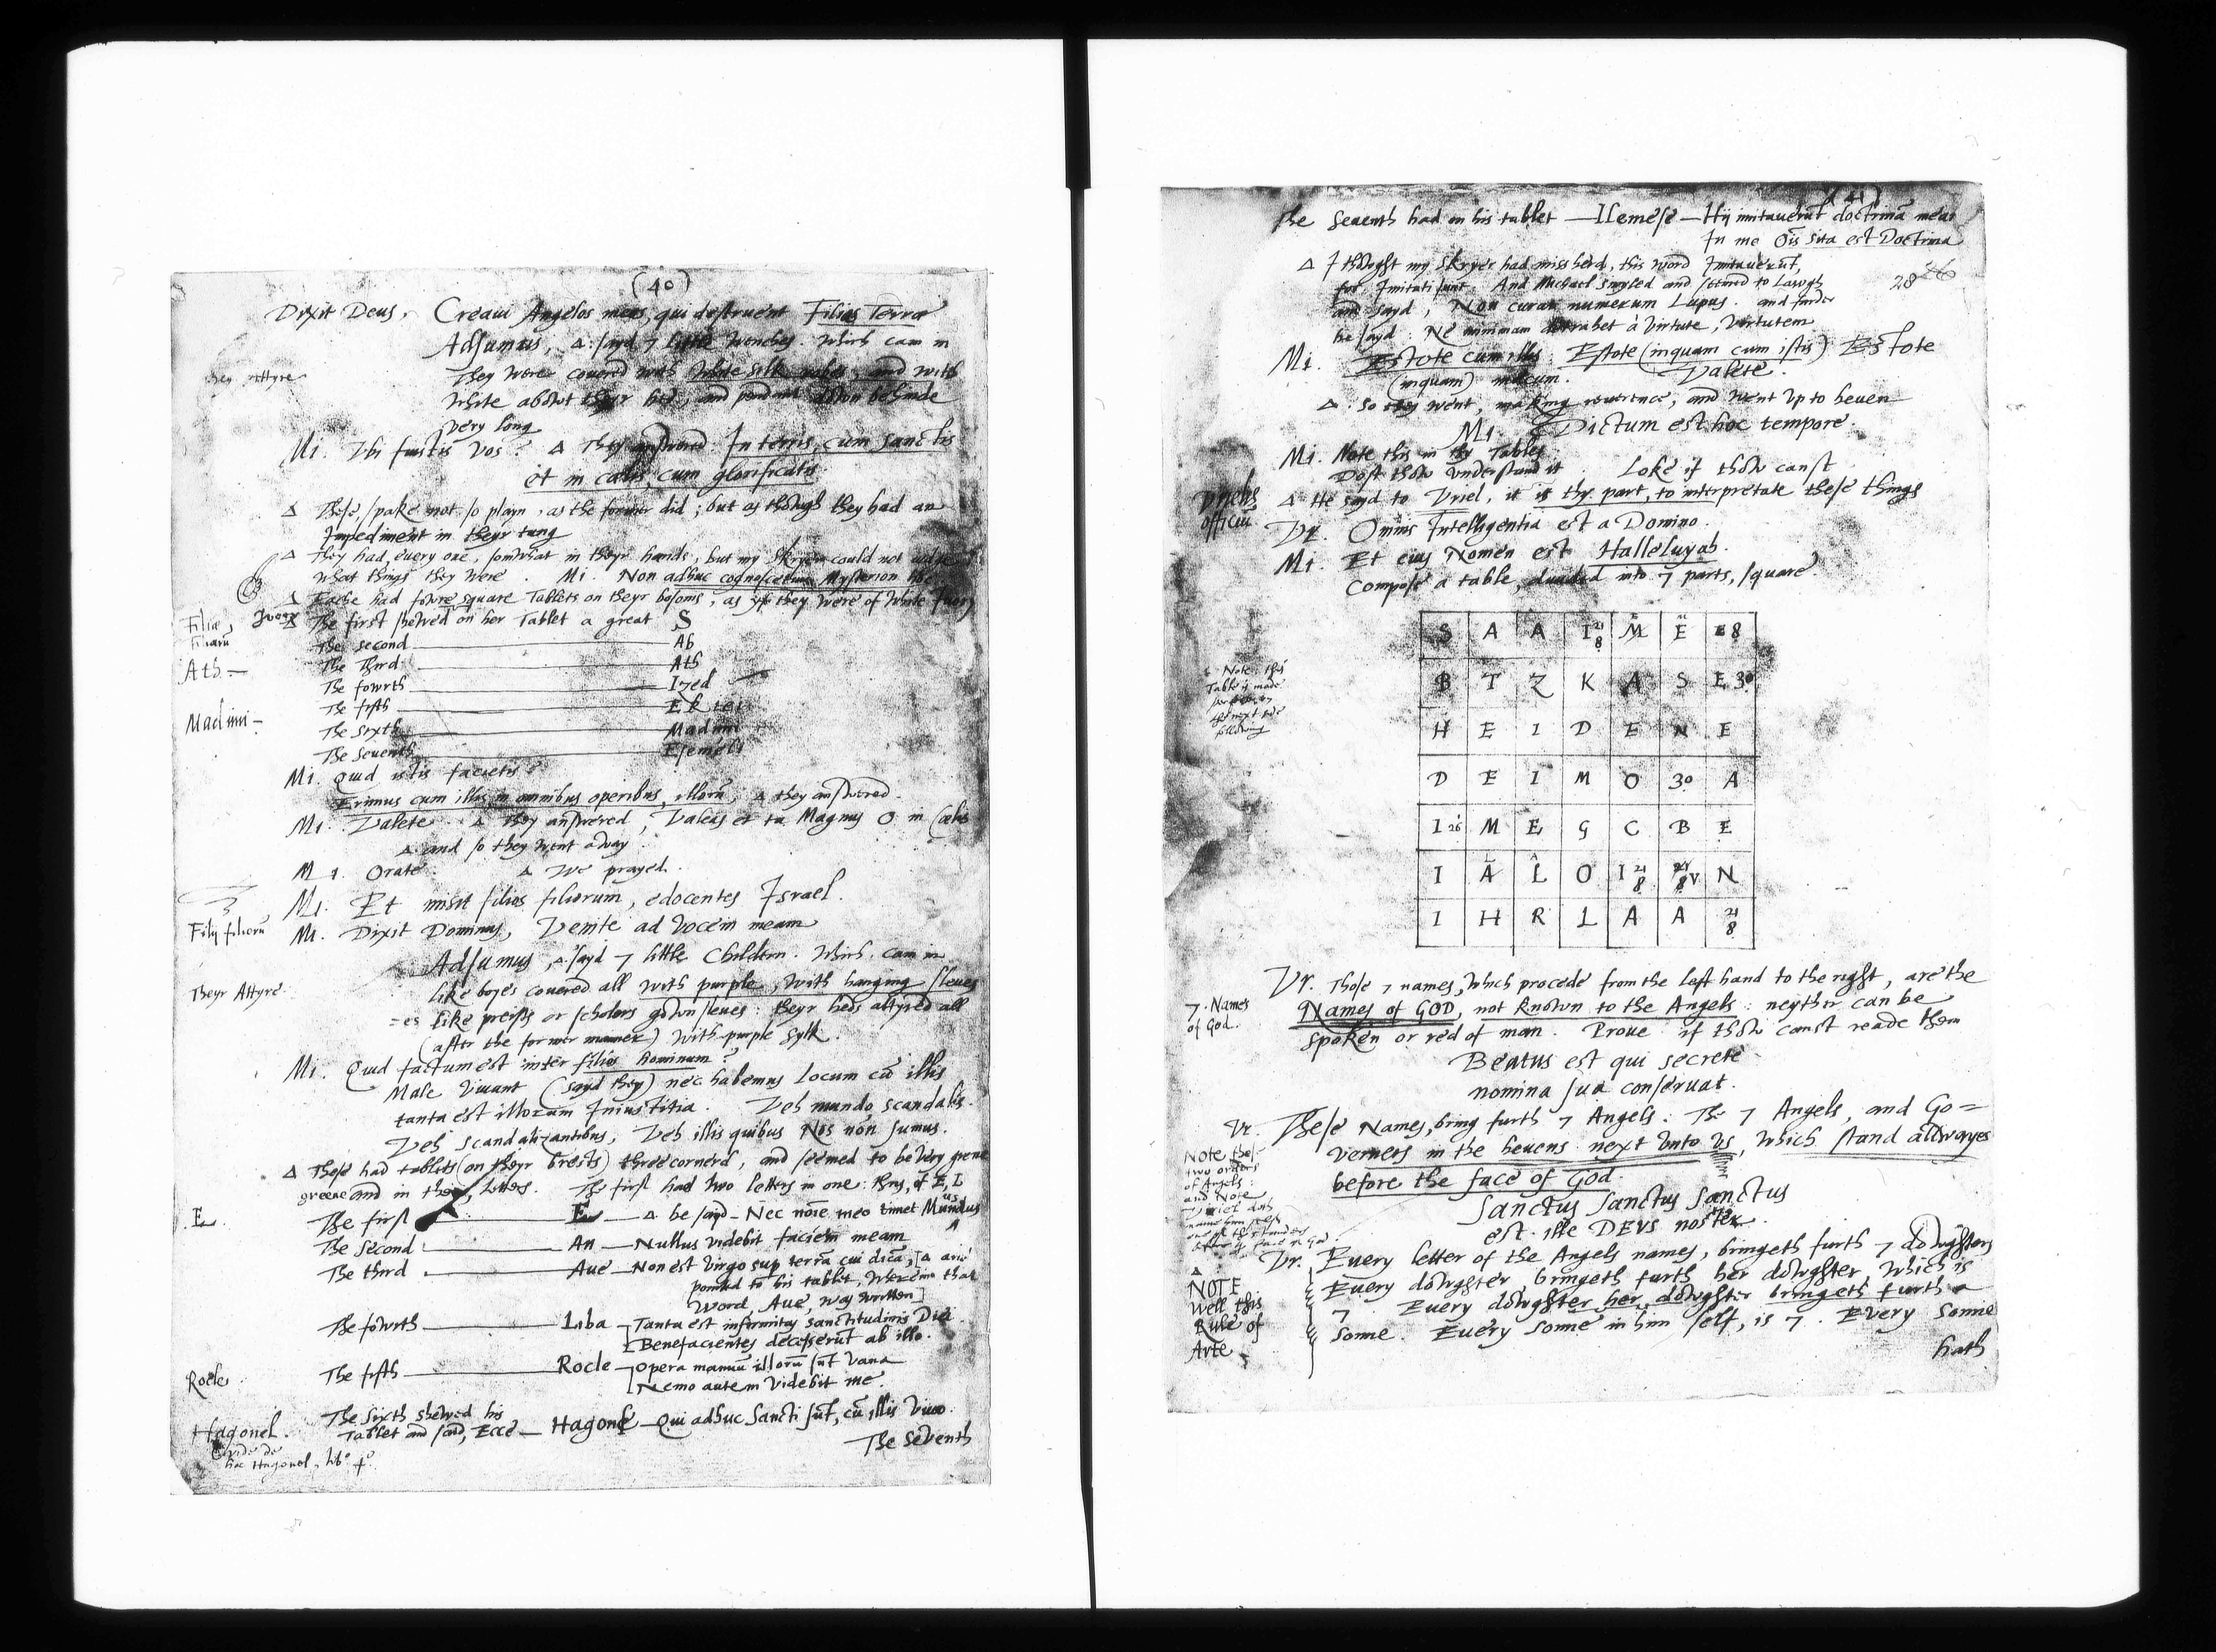 (40)
Dixit Deus, Creavi Angelos meos, qui destruent Filias Terræ
Adsumus, Δ: sayd 7 little wenches. which cam in
They were covered with white silk robes, and with
white abowt theyr hed, and pendant down behinde
very long
Mi. Vbi fuistis vos? Δ They answered: In terris, cum sanctis
et in cælis, cum glorificatis.
Δ These, spake not so playn, as the former did; but as though they had an
Impediment in theyr tung
Δ They had, every one, somwhat in theyr hands, but my Skryer could not
what things they were. Mi. Non adhuc cognoscetur Mysterion hoc
Δ Eache had fowre square Tablets on theyr bosoms, as yf they were of white Ivory
Filiæ, Filiarū
Ivory
Δ The first shewed on her Tablet a great S
The second Ab
Ath — The Third Ath
The fowrth Ized
The fifth Ekiei
Madimi — The sixth Madimi
The Seventh Esemeli
Mi. Quid istis facietis?
Erimus cum illis, in omnibus operibus, illorū, Δ they answered.
Mi. Valete. Δ They answered, Valeas et tu Magnus O in Cælis
Δ and so they went away.
Mi. Orate. Δ We prayed.
Mi. Et misit filios filiorum, edocentes Israel.
Filij filiorū Mi. Dixit Dominus, Venite ad vocem meam
Adsumus, Δ sayd 7 little Childern. Which, cam in
Theyr Attyre like boyes covered all with purple, with hanging sleves
like preists or scholers gown sleves: theyr heds attyred all
(after the former manner) with purple sylk.
Mi. Quid factum est inter filios hominum?
Male vivunt (sayd they) nec habemus locum cū illis
tanta est illorum Iniustitia. Veh mundo scandalis.
Veh scandalizantibus, Veh illis quibus Nos non sumus.
Δ These had tablets (on theyr brests) three cornerd, and seemed to be very grene
greene and in them, letters. The first had two letters in one: thus, of E, L
E The first E — Δ he sayd — Nec nōīe meo timet Mundus
The second An — Nullus videbit faciem meam
The third Ave — Non est virgo sup terrā cui dicā, [Δ and
pointed to his tablet, wherein that
word, Ave, was written]
The fowrth Liba — Tanta est infirmitas sanctitudinis Diei
Benefacientes decesserūt ab illo.
Rocle The fifth Rocle — Opera manuū illorū sūt vana
Nemo autem videbit me.
Hagonel. The sixth shewed his
Tablet and sayd, Ecce — Hagonel — Qui adhuc sancti sūt, cū illis vivo.
Vide de
hoc Hagonel, lib° 4°.
The Seventh
(41)
The Seventh had on his tablet — Ilemese — Hij imitaverūt doctrinā meā
In me Ōis sita est Doctrina
28
Δ I thowght my Skryer had miss herd, this word Imitaverūt,
for Imitati sunt. And Michael smyled and seemed to Lawgh
and sayd, Non curat numerum Lupus. and furder
he sayd: Ne minimam detrahet à virtute, virtutem
Mi. Estote cum illis: Estote (inquam cum istis) Estote
(inquam) mecum. Valete.
Δ: So they went, making reverence, and went up to heven
Mi. Dictum est hoc tempore.
Mi. Note this in thy Tables:
Dost thow understand it. Loke if thow canst
Vriels officiū Δ He sayd to Vriel, it is thy part, to interpretate these things
Vr. Omnis Intelligentia est a Domino.
Mi. Et eius Nomen est Halleluyah.
Compose a table, divided into 7 parts, square.
Note: this
Table is made
the next side
following
S A A I 21/8 M E E8
B T Z K A S E30
H E I D E N E
D E I M O 30 A
I26 M E G C B E
I L A A L O I 21/8 21/8 V N
I H R L A A 21/8
Vr. Those 7 names, which procede from the left hand to the right, are the
7. Names of God. Names of GOD, not known to the Angels: neyther can be
spoken or red of man. Prove if thow canst reade them
Beatus est qui secrete
nomina sua conservat.
Vr. These Names, bring furth 7 Angels: The 7 Angels, and Go=
verners in the hevens next unto us, which stand allwayes
before the face of God.
Note these
two orders
of Angels:
and Note
Sanctus Sanctus Sanctus
est. ille DEVS noster.
Vr. Every letter of the Angels names, bringeth furth 7 dowghters
Every dowghter bringeth furth her dowghter, which is
7. Every dowghter her dowghter bringeth furth a
Sonne. Every Sonne in him self, is 7. Every Sonne
hath
Δ
NOTE
Well this
Rule of
Arte